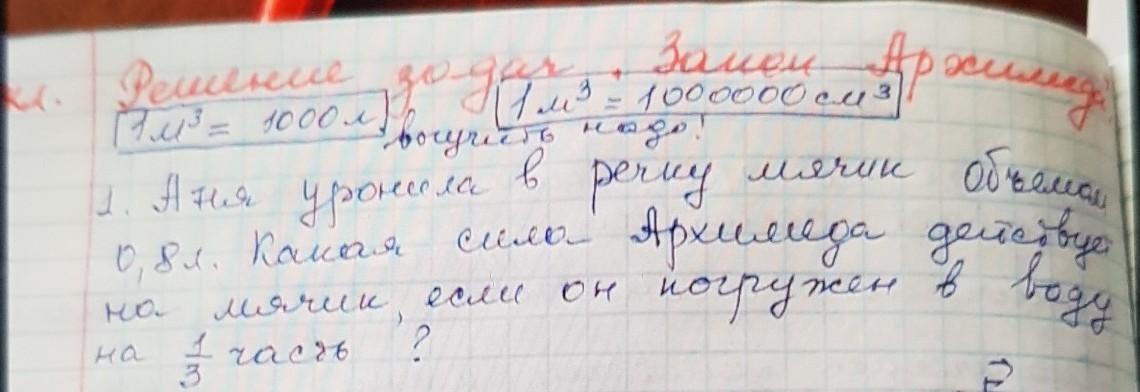 кл. Решение задач. Закон Архимеда
1м³ = 1000л, 1м³ = 1000000см³
выучить надо!
1. Аня уронила в речку мячик объемом
0,8л. Какая сила Архимеда действует
на мячик, если он погружен в воду
на 1/3 часть ?
F